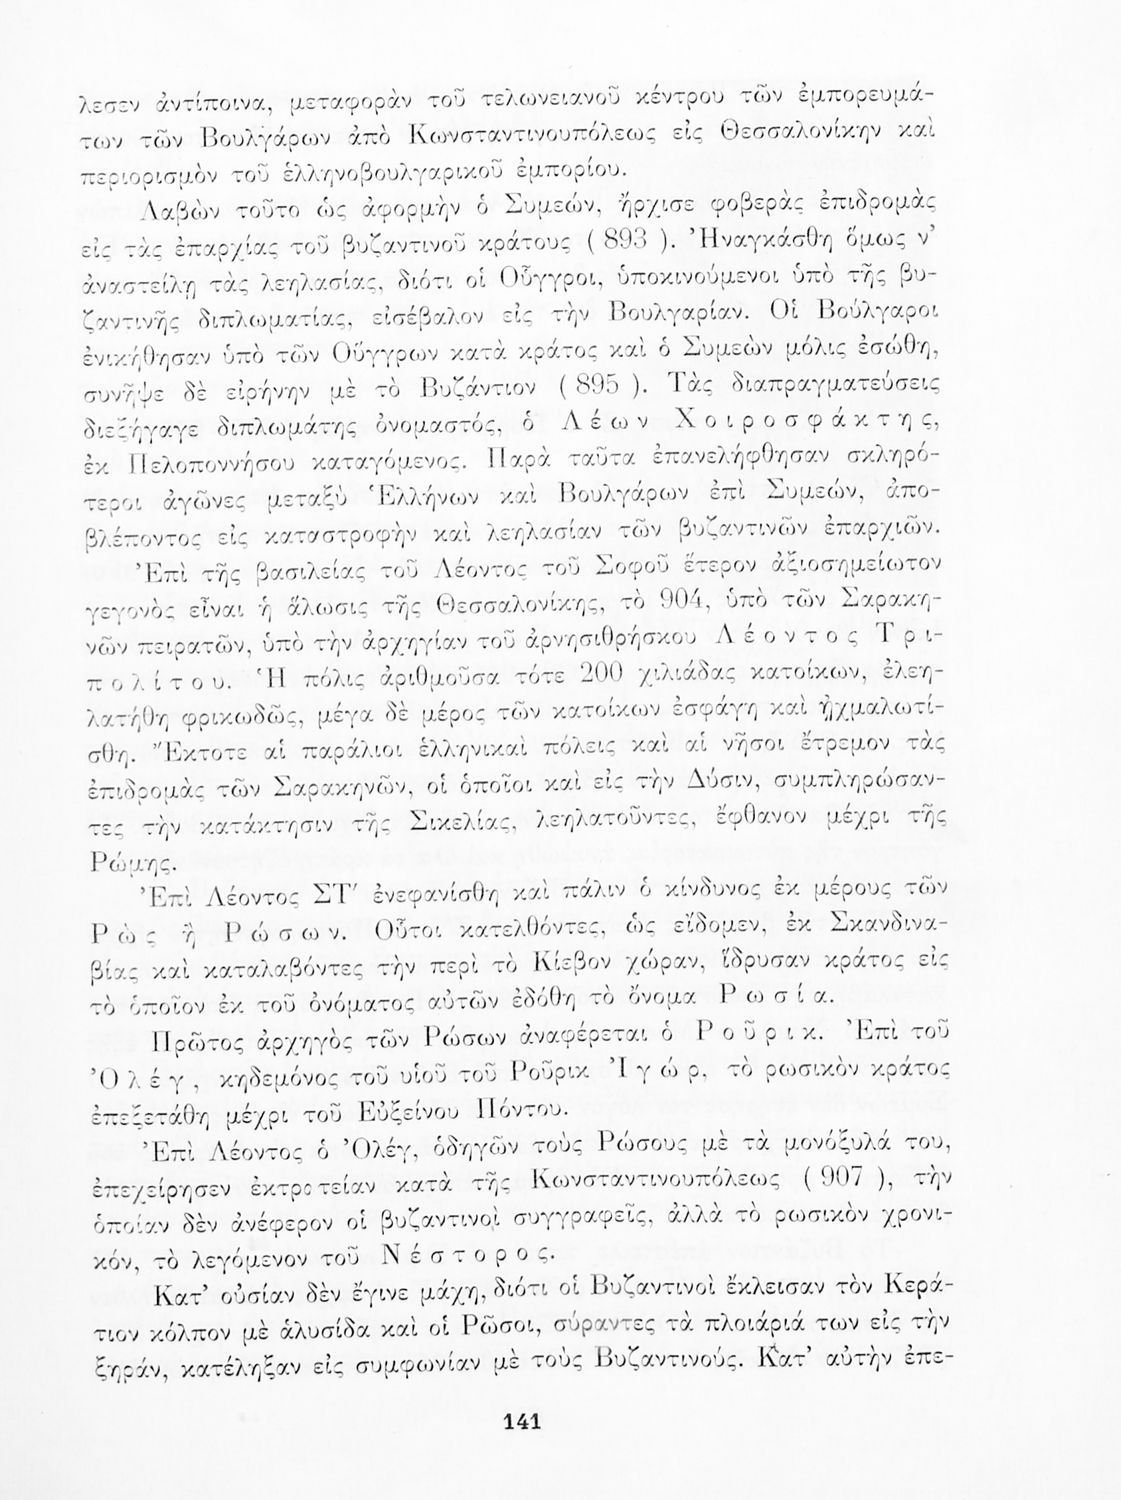 λεσεν ἀντίποινα, μεταφορὰν τοῦ τελωνειανοῦ κέντρου τῶν ἐμπορευμά-
των τῶν Βουλγάρων ἀπὸ Κωνσταντινουπόλεως εἰς Θεσσαλονίκην καὶ
περιορισμὸν τοῦ ἑλληνοβουλγαρικοῦ ἐμπορίου.
Λαβὼν τοῦτο ὡς ἀφορμὴν ὁ Συμεών, ἤρχισε φοβερὰς ἐπιδρομὰς
εἰς τὰς ἐπαρχίας τοῦ βυζαντινοῦ κράτους ( 893 ). Ἠναγκάσθη ὅμως ν’
ἀναστείλῃ τὰς λεηλασίας, διότι οἱ Οὖγγροι, ὑποκινούμενοι ὑπὸ τῆς βυ-
ζαντινῆς διπλωματίας, εἰσέβαλον εἰς τὴν Βουλγαρίαν. Οἱ Βούλγαροι
ἐνικήθησαν ὑπὸ τῶν Οὕγγρων κατὰ κράτος καὶ ὁ Συμεὼν μόλις ἐσώθη,
συνῆψε δὲ εἰρήνην μὲ τὸ Βυζάντιον ( 895 ). Τὰς διαπραγματεύσεις
διεξήγαγε διπλωμάτης ὀνομαστός, ὁ Λέων Χοιροσφάκτης,
ἐκ Πελοποννήσου καταγόμενος. Παρὰ ταῦτα ἐπανελήφθησαν σκληρό-
τεροι ἀγῶνες μεταξὺ Ἑλλήνων καὶ Βουλγάρων ἐπὶ Συμεών, ἀπο-
βλέποντος εἰς καταστροφὴν καὶ λεηλασίαν τῶν βυζαντινῶν ἐπαρχιῶν.
Ἐπὶ τῆς βασιλείας τοῦ Λέοντος τοῦ Σοφοῦ ἕτερον ἀξιοσημείωτον
γεγονὸς εἶναι ἡ ἅλωσις τῆς Θεσσαλονίκης, τὸ 904, ὑπὸ τῶν Σαρακη-
νῶν πειρατῶν, ὑπὸ τὴν ἀρχηγίαν τοῦ ἀρνησιθρήσκου Λέοντος Τρι-
πολίτου. Ἡ πόλις ἀριθμοῦσα τότε 200 χιλιάδας κατοίκων, ἐλεη-
λατήθη φρικωδῶς, μέγα δὲ μέρος τῶν κατοίκων ἐσφάγη καὶ ᾐχμαλωτί-
σθη. Ἔκτοτε αἱ παράλιοι ἑλληνικαὶ πόλεις καὶ αἱ νῆσοι ἔτρεμον τὰς
ἐπιδρομὰς τῶν Σαρακηνῶν, οἱ ὁποῖοι καὶ εἰς τὴν Δύσιν, συμπληρώσαν-
τες τὴν κατάκτησιν τῆς Σικελίας, λεηλατοῦντες, ἔφθανον μέχρι τῆς
Ρώμης.
Ἐπὶ Λέοντος ΣΤ′ ἐνεφανίσθη καὶ πάλιν ὁ κίνδυνος ἐκ μέρους τῶν
Ρὼς ἢ Ρώσων. Οὗτοι κατελθόντες, ὡς εἴδομεν, ἐκ Σκανδινα-
βίας καὶ καταλαβόντες τὴν περὶ τὸ Κίεβον χώραν, ἵδρυσαν κράτος εἰς
τὸ ὁποῖον ἐκ τοῦ ὀνόματος αὐτῶν ἐδόθη τὸ ὄνομα Ρωσία.
Πρῶτος ἀρχηγὸς τῶν Ρώσων ἀναφέρεται ὁ Ροῦρικ. Ἐπὶ τοῦ
Ὀλέγ, κηδεμόνος τοῦ υἱοῦ τοῦ Ροῦρικ Ἰγώρ, τὸ ρωσικὸν κράτος
ἐπεξετάθη μέχρι τοῦ Εὐξείνου Πόντου.
Ἐπὶ Λέοντος ὁ Ὀλέγ, ὁδηγῶν τοὺς Ρώσους μὲ τὰ μονόξυλά του,
ἐπεχείρησεν ἐκτροτείαν κατὰ τῆς Κωνσταντινουπόλεως ( 907 ), τὴν
ὁποίαν δὲν ἀνέφερον οἱ βυζαντινοὶ συγγραφεῖς, ἀλλὰ τὸ ρωσικὸν χρονι-
κόν, τὸ λεγόμενον τοῦ Νέστορος.
Κατ’ οὐσίαν δὲν ἔγινε μάχη, διότι οἱ Βυζαντινοὶ ἔκλεισαν τὸν Κερά-
τιον κόλπον μὲ ἁλυσίδα καὶ οἱ Ρῶσοι, σύραντες τὰ πλοιάριά των εἰς τὴν
ξηράν, κατέληξαν εἰς συμφωνίαν μὲ τοὺς Βυζαντινούς. Κατ’ αὐτὴν ἐπε-
141